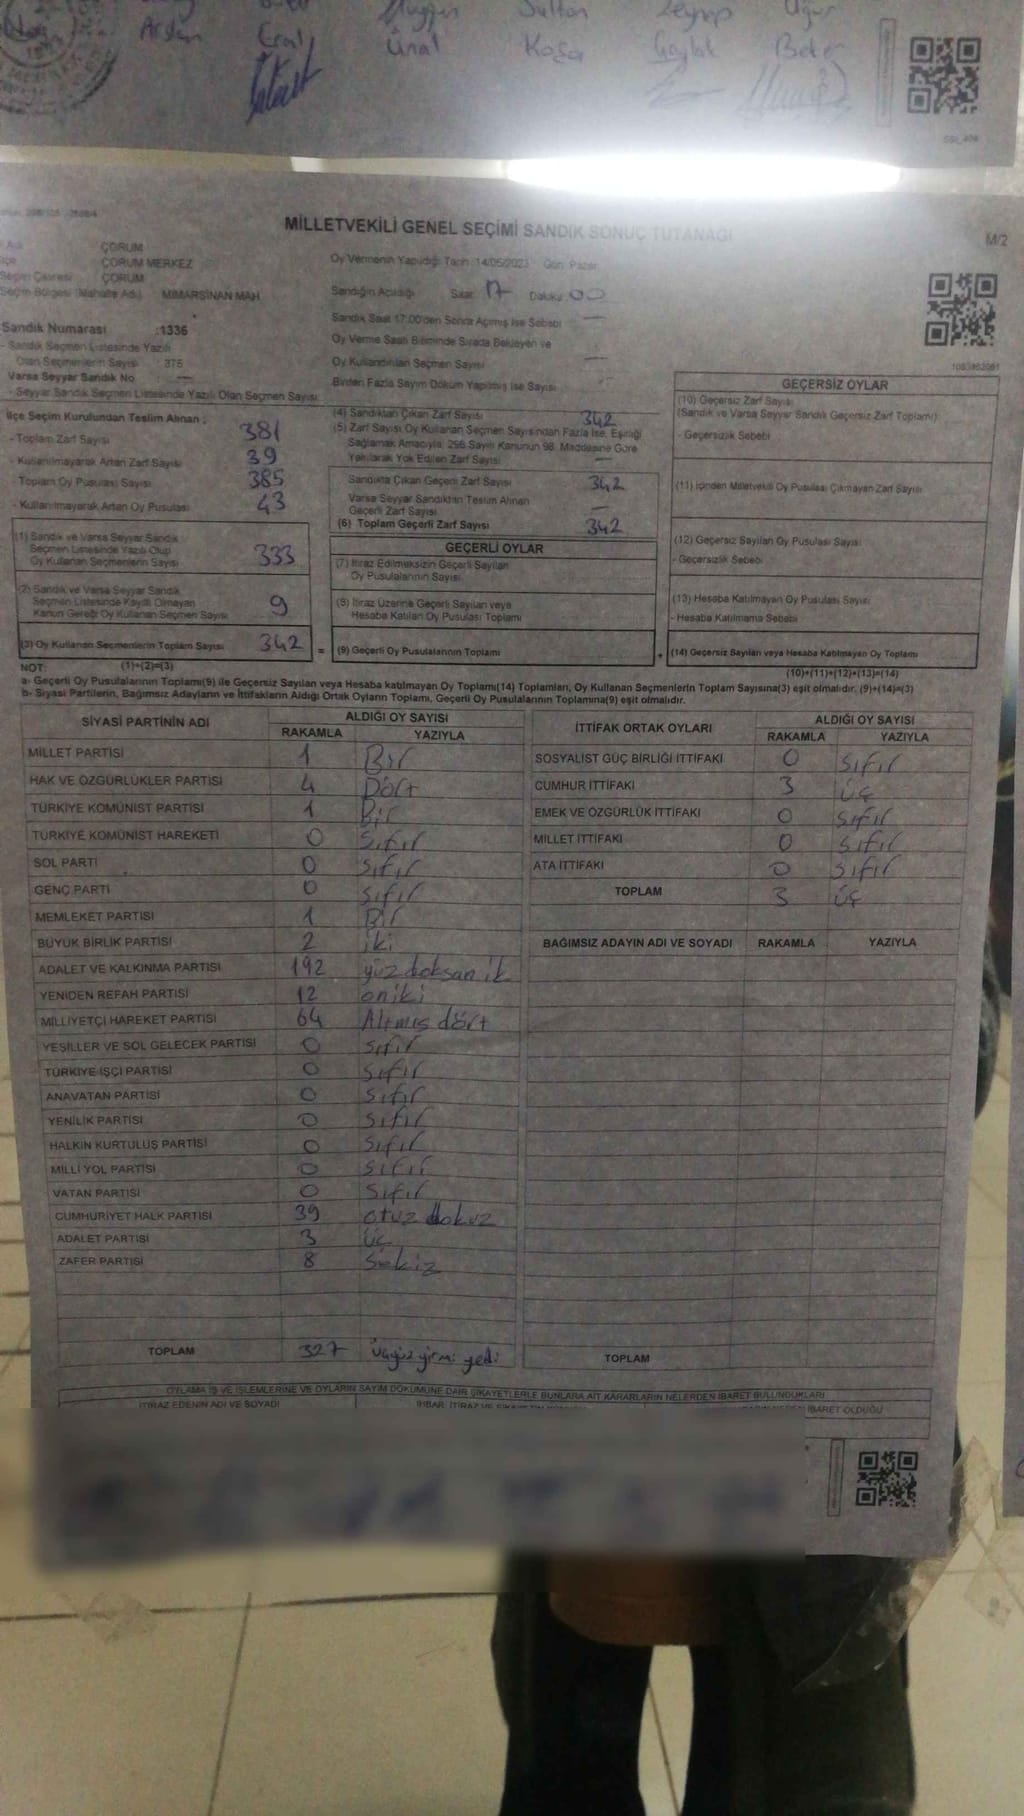 Arslan Eral Ünal Sultan Koşar Zeynep Uğur
MİLLETVEKİLİ GENEL SEÇİMİ SANDIK SONUÇ TUTANAĞI
M/2
ÇORUM
ÇORUM MERKEZ
Seçim Çevresi ÇORUM
Seçim Bölgesi (Mahalle Adı) MİMARSİNAN MAH
Sandık Numarası :1336
- Sandık Seçmen Listesinde Yazılı
Olan Seçmenlerin Sayısı 375
Varsa Seyyar Sandık No —
- Seyyar Sandık Seçmen Listesinde Yazılı Olan Seçmen Sayısı
İlçe Seçim Kurulundan Teslim Alınan ;
- Toplam Zarf Sayısı 381
- Kullanılmayarak Artan Zarf Sayısı 39
- Toplam Oy Pusulası Sayısı 385
- Kullanılmayarak Artan Oy Pusulası 43
(1) Sandık ve Varsa Seyyar Sandık
Seçmen Listesinde Yazılı Olup
Oy Kullanan Seçmenlerin Sayısı 333
(2) Sandık ve Varsa Seyyar Sandık
Seçmen Listesinde Kayıtlı Olmayan
Kanun Gereği Oy Kullanan Seçmen Sayısı 9
(3) Oy Kullanan Seçmenlerin Toplam Sayısı 342 =
Oy Vermenin Yapıldığı Tarih 14/05/2023 Gün: Pazar
Sandığın Açıldığı Saat 17 Dakika 00
Sandık Saat 17:00'den Sonra Açılmış İse Sebebi —
Oy Verme Saati Bitiminde Sırada Bekleyen ve
Oy Kullandırılan Seçmen Sayısı —
Birden Fazla Sayım Döküm Yapılmış İse Sayısı —
(4) Sandıktan Çıkan Zarf Sayısı 342
(5) Zarf Sayısı Oy Kullanan Seçmen Sayısından Fazla İse, Eşitliği
Sağlamak Amacıyla, 298 Sayılı Kanunun 98. Maddesine Göre
Yakılarak Yok Edilen Zarf Sayısı —
Sandıkta Çıkan Geçerli Zarf Sayısı 342
Varsa Seyyar Sandıktan Teslim Alınan
Geçerli Zarf Sayısı —
(6) Toplam Geçerli Zarf Sayısı 342
GEÇERLİ OYLAR
(7) İtiraz Edilmeksizin Geçerli Sayılan
Oy Pusulalarının Sayısı
(8) İtiraz Üzerine Geçerli Sayılan veya
Hesaba Katılan Oy Pusulası Toplamı
(9) Geçerli Oy Pusulalarının Toplamı +
GEÇERSİZ OYLAR
(10) Geçersiz Zarf Sayısı
(Sandık ve Varsa Seyyar Sandık Geçersiz Zarf Toplamı)
- Geçersizlik Sebebi
(11) İçinden Milletvekili Oy Pusulası Çıkmayan Zarf Sayısı
(12) Geçersiz Sayılan Oy Pusulası Sayısı
- Geçersizlik Sebebi
(13) Hesaba Katılmayan Oy Pusulası Sayısı
- Hesaba Katılmama Sebebi
(14) Geçersiz Sayılan veya Hesaba Katılmayan Oy Toplamı
NOT: (1)+(2)=(3) (10)+(11)+(12)+(13)=(14)
a- Geçerli Oy Pusulaları Toplamı(9) ile Geçersiz Sayılan veya Hesaba katılmayan Oy Toplamı(14) Toplamları, Oy Kullanan Seçmenlerin Toplam Sayısına(3) eşit olmalıdır. (9)+(14)=(3)
b- Siyasi Partilerin, Bağımsız Adayların ve İttifakların Aldığı Ortak Oyların Toplamı, Geçerli Oy Pusulalarının Toplamına(9) eşit olmalıdır.
SİYASİ PARTİNİN ADI ALDIĞI OY SAYISI
RAKAMLA YAZIYLA
MİLLET PARTİSİ 1 Bir
HAK VE ÖZGÜRLÜKLER PARTİSİ 4 Dört
TÜRKİYE KOMÜNİST PARTİSİ 1 Bir
TÜRKİYE KOMÜNİST HAREKETİ 0 sıfır
SOL PARTİ 0 sıfır
GENÇ PARTİ 0 sıfır
MEMLEKET PARTİSİ 1 Bir
BÜYÜK BİRLİK PARTİSİ 2 iki
ADALET VE KALKINMA PARTİSİ 192 yüz doksan ik
YENİDEN REFAH PARTİSİ 12 oniki
MİLLİYETÇİ HAREKET PARTİSİ 64 Altmış dört
YEŞİLLER VE SOL GELECEK PARTİSİ 0 sıfır
TÜRKİYE İŞÇİ PARTİSİ 0 sıfır
ANAVATAN PARTİSİ 0 sıfır
YENİLİK PARTİSİ 0 sıfır
HALKIN KURTULUŞ PARTİSİ 0 sıfır
MİLLİ YOL PARTİSİ 0 sıfır
VATAN PARTİSİ 0 sıfır
CUMHURİYET HALK PARTİSİ 39 otuz dokuz
ADALET PARTİSİ 3 üç
ZAFER PARTİSİ 8 sekiz
TOPLAM 327 üçyüz yirmi yedi
İTTİFAK ORTAK OYLARI ALDIĞI OY SAYISI
RAKAMLA YAZIYLA
SOSYALİST GÜÇ BİRLİĞİ İTTİFAKI 0 sıfır
CUMHUR İTTİFAKI 3 üç
EMEK VE ÖZGÜRLÜK İTTİFAKI 0 sıfır
MİLLET İTTİFAKI 0 sıfır
ATA İTTİFAKI 0 sıfır
TOPLAM 3 üç
BAĞIMSIZ ADAYIN ADI VE SOYADI RAKAMLA YAZIYLA
TOPLAM
OYLAMA İŞ VE İŞLEMLERİNE VE OYLARIN SAYIM DÖKÜMÜNE DAİR ŞİKAYETLERLE BUNLARA AİT KARARLARIN NELERDEN İBARET BULUNDUKLARI
İTİRAZ EDENİN ADI VE SOYADI
İBARET OLDUĞU